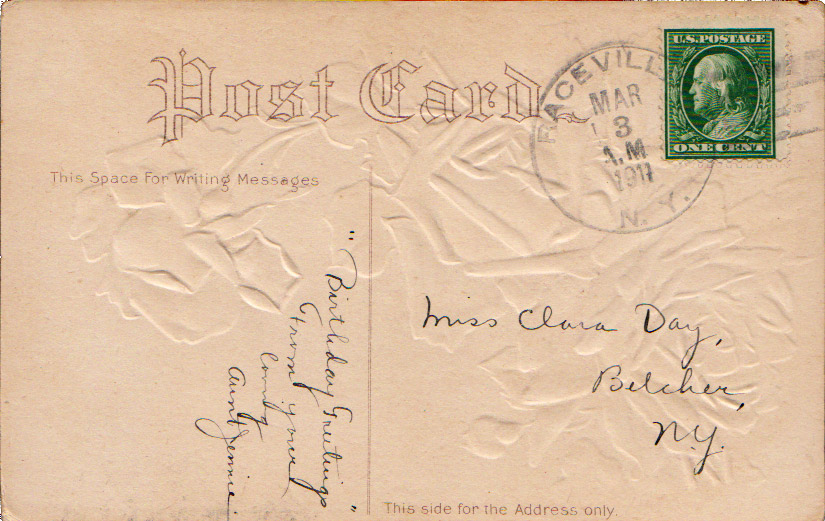 Post Card
RACEVILLE
MAR
3
A.M
1911
N.Y.
U.S. POSTAGE
ONE CENT
This Space For Writing Messages
"Birthday Greetings"
From your
loving
Aunt Jennie.
Miss Clara Day,
Belcher,
N.Y.
This side for the Address only.